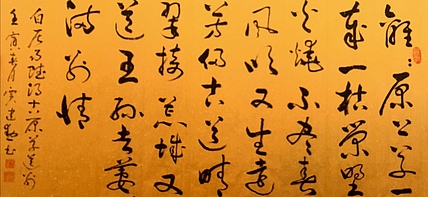 離〻原上草一
歲一枯榮野
火燒不盡春
風吹又生遠
芳侵古道晴
翠接荒城又
送王孫去萋〻
滿別情
白居易賦得古原草送別
壬寅